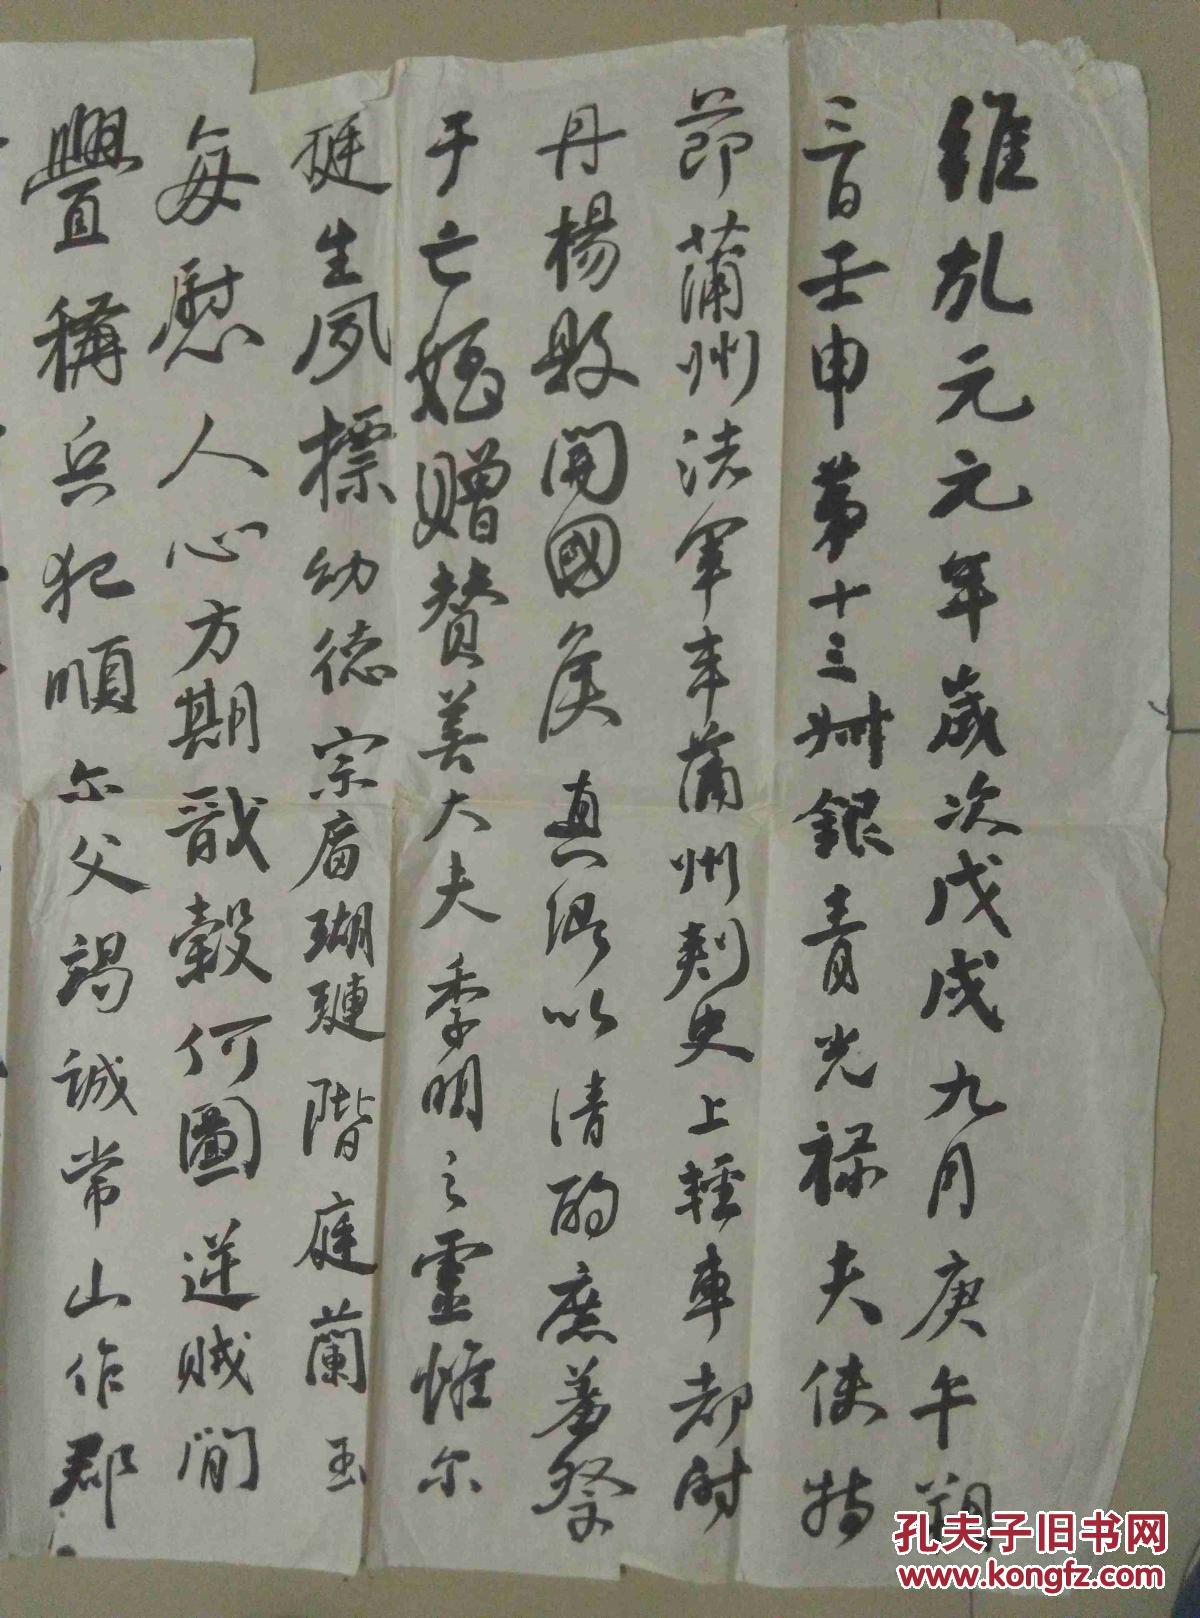 維乾元元年歲次戊戌九月庚午朔
三日壬申第十三叔銀青光禄夫使持
節蒲州諸軍事蒲州刺史上輕車都尉
丹楊縣開國侯真卿以清酌庶羞祭
于亡姪贈贊善大夫季明之靈惟尔
挺生夙標幼德宗廟瑚璉階庭蘭玉
每慰人心方期戩穀何圖逆賊閒
釁稱兵犯順尔父竭誠常山作郡
孔夫子旧书网
www.kongfz.com